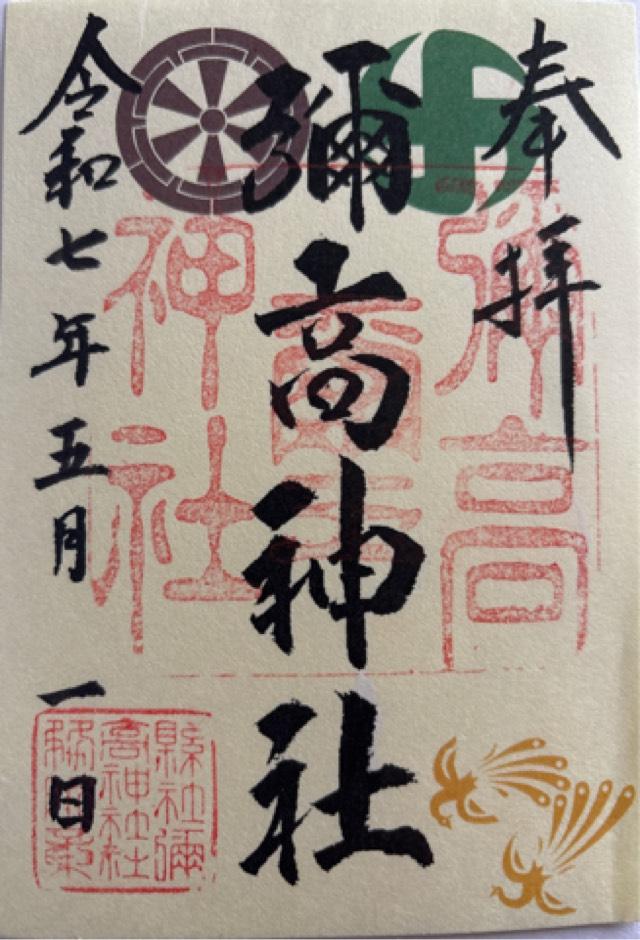 奉拝
彌高神社
令和七年五月一日
彌高
神社
縣社彌
高神社社
務所印